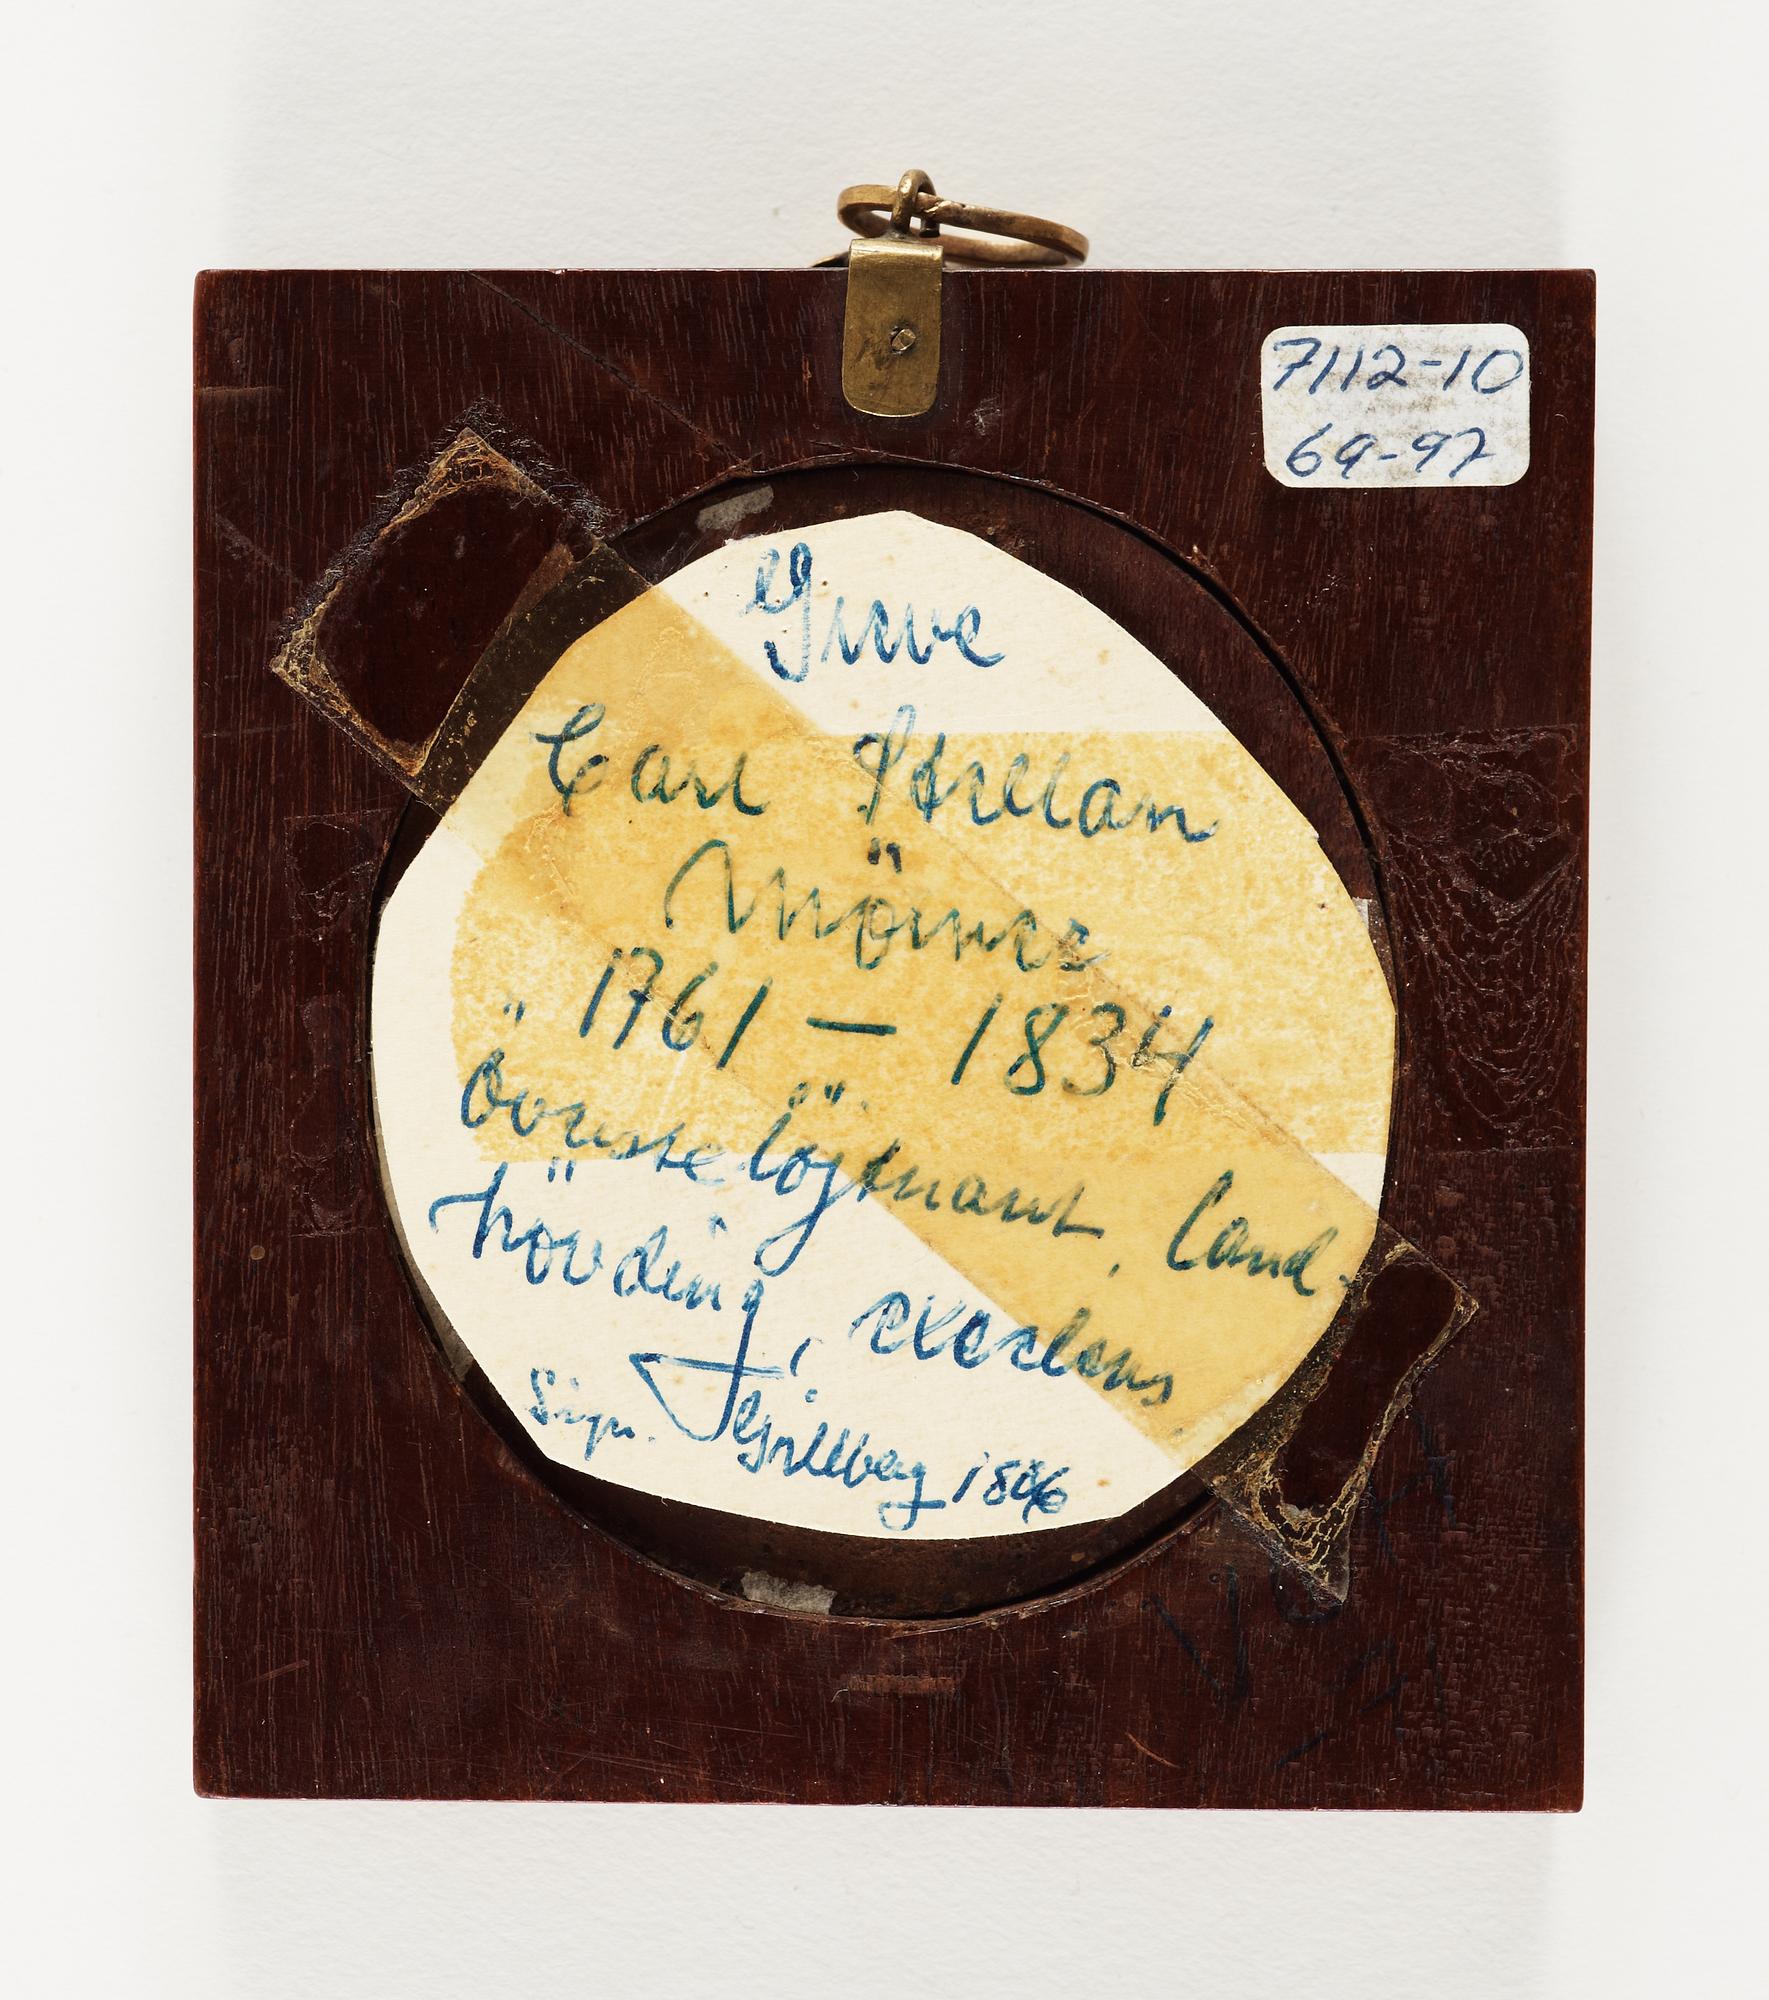 7112-10
69-97
Greve
Carl Stellan
Mörner
1761 — 1834
överstelöjtnant, land-
hövding, excellens
Sign. J Gillberg 1806